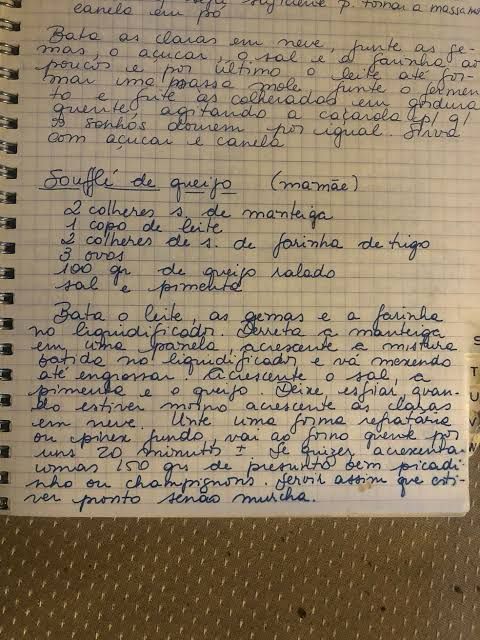 suficiente p. tornar a massa mo
canela em pó
Bata as claras em neve, junte as ge-
mas, o açucar, o sal e a farinha aos
poucos e por último o leite até for-
mar uma massa mole. Junte o fermen-
to e frite às colheradas em gordura
quente, agitando a caçarola p/ q/
os sonhos dourem por igual. Sirva
com açucar e canela
Soufflé de queijo (mamãe)
2 colheres s. de manteiga
1 copo de leite
2 colheres de s. de farinha de trigo
3 ovos
100 gr de queijo ralado
sal e pimenta
Bata o leite, as gemas e a farinha
no liquidificador. Derreta a manteiga
em uma panela, acrescente a mistura
batida no liquidificador e vá mexendo
até engrossar. Acrescente o sal, a
pimenta e o queijo. Deixe esfriar quan-
do estiver morno acrescente as claras
em neve. Unte uma forma refratária
ou pirex fundo, vai ao forno quente por
uns 20 minutos ± Se quizer acrescentar
umas 150 grs de presunto bem picadi-
nho ou champignons. Servir assim que esti-
ver pronto senão murcha.
S
T
U
V
W